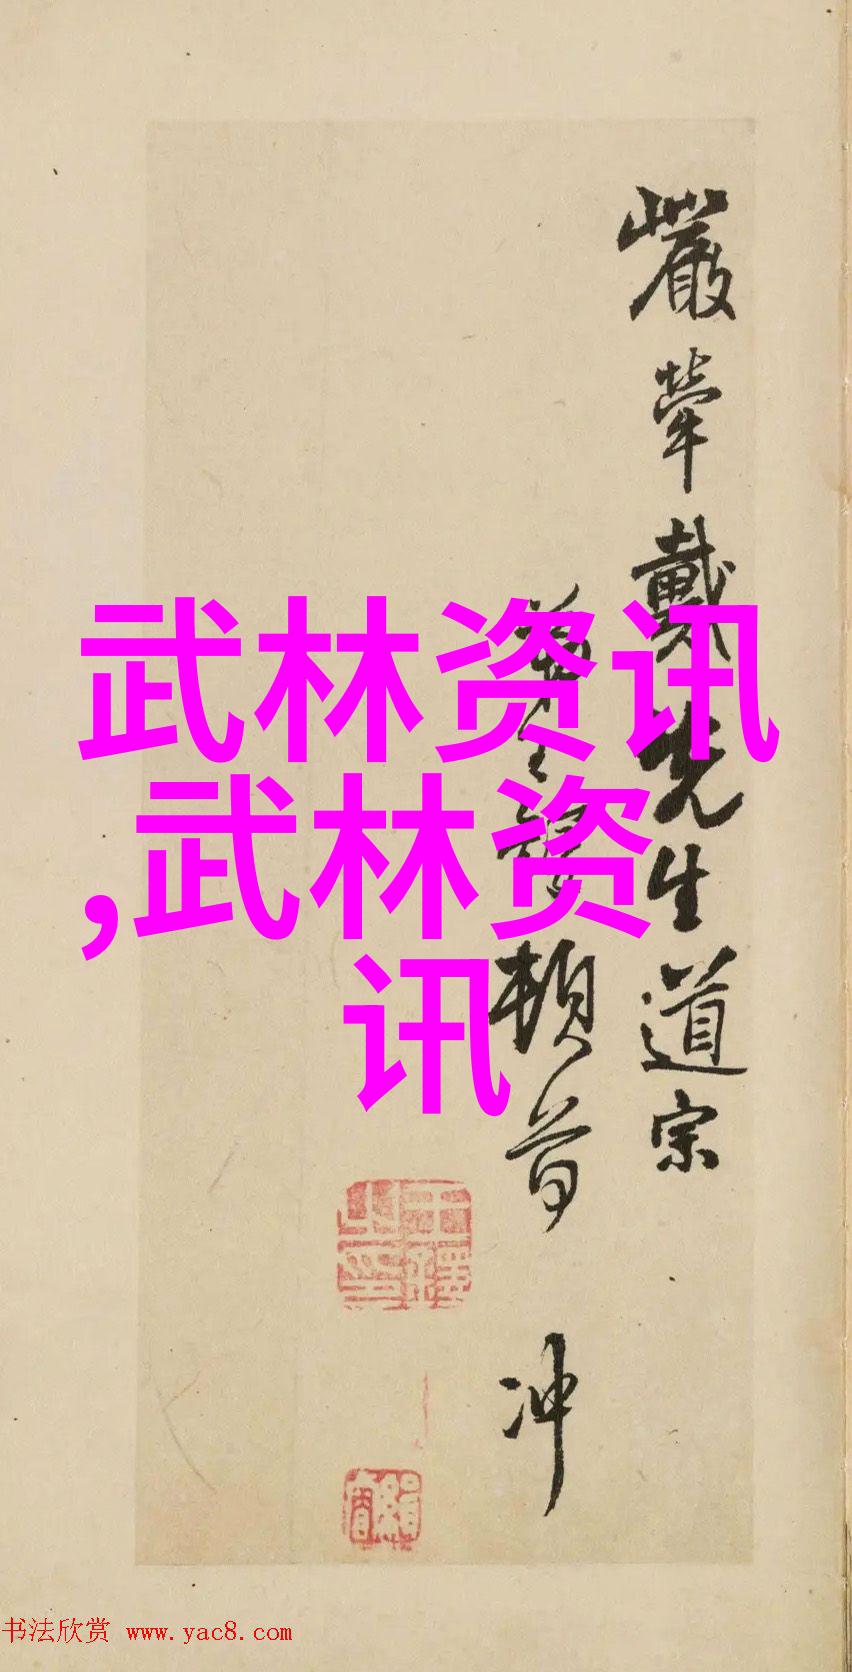 巖犖戴先生道宗
頓首 冲
武林资讯
,武林资
讯
书法欣赏 www.yac8.com